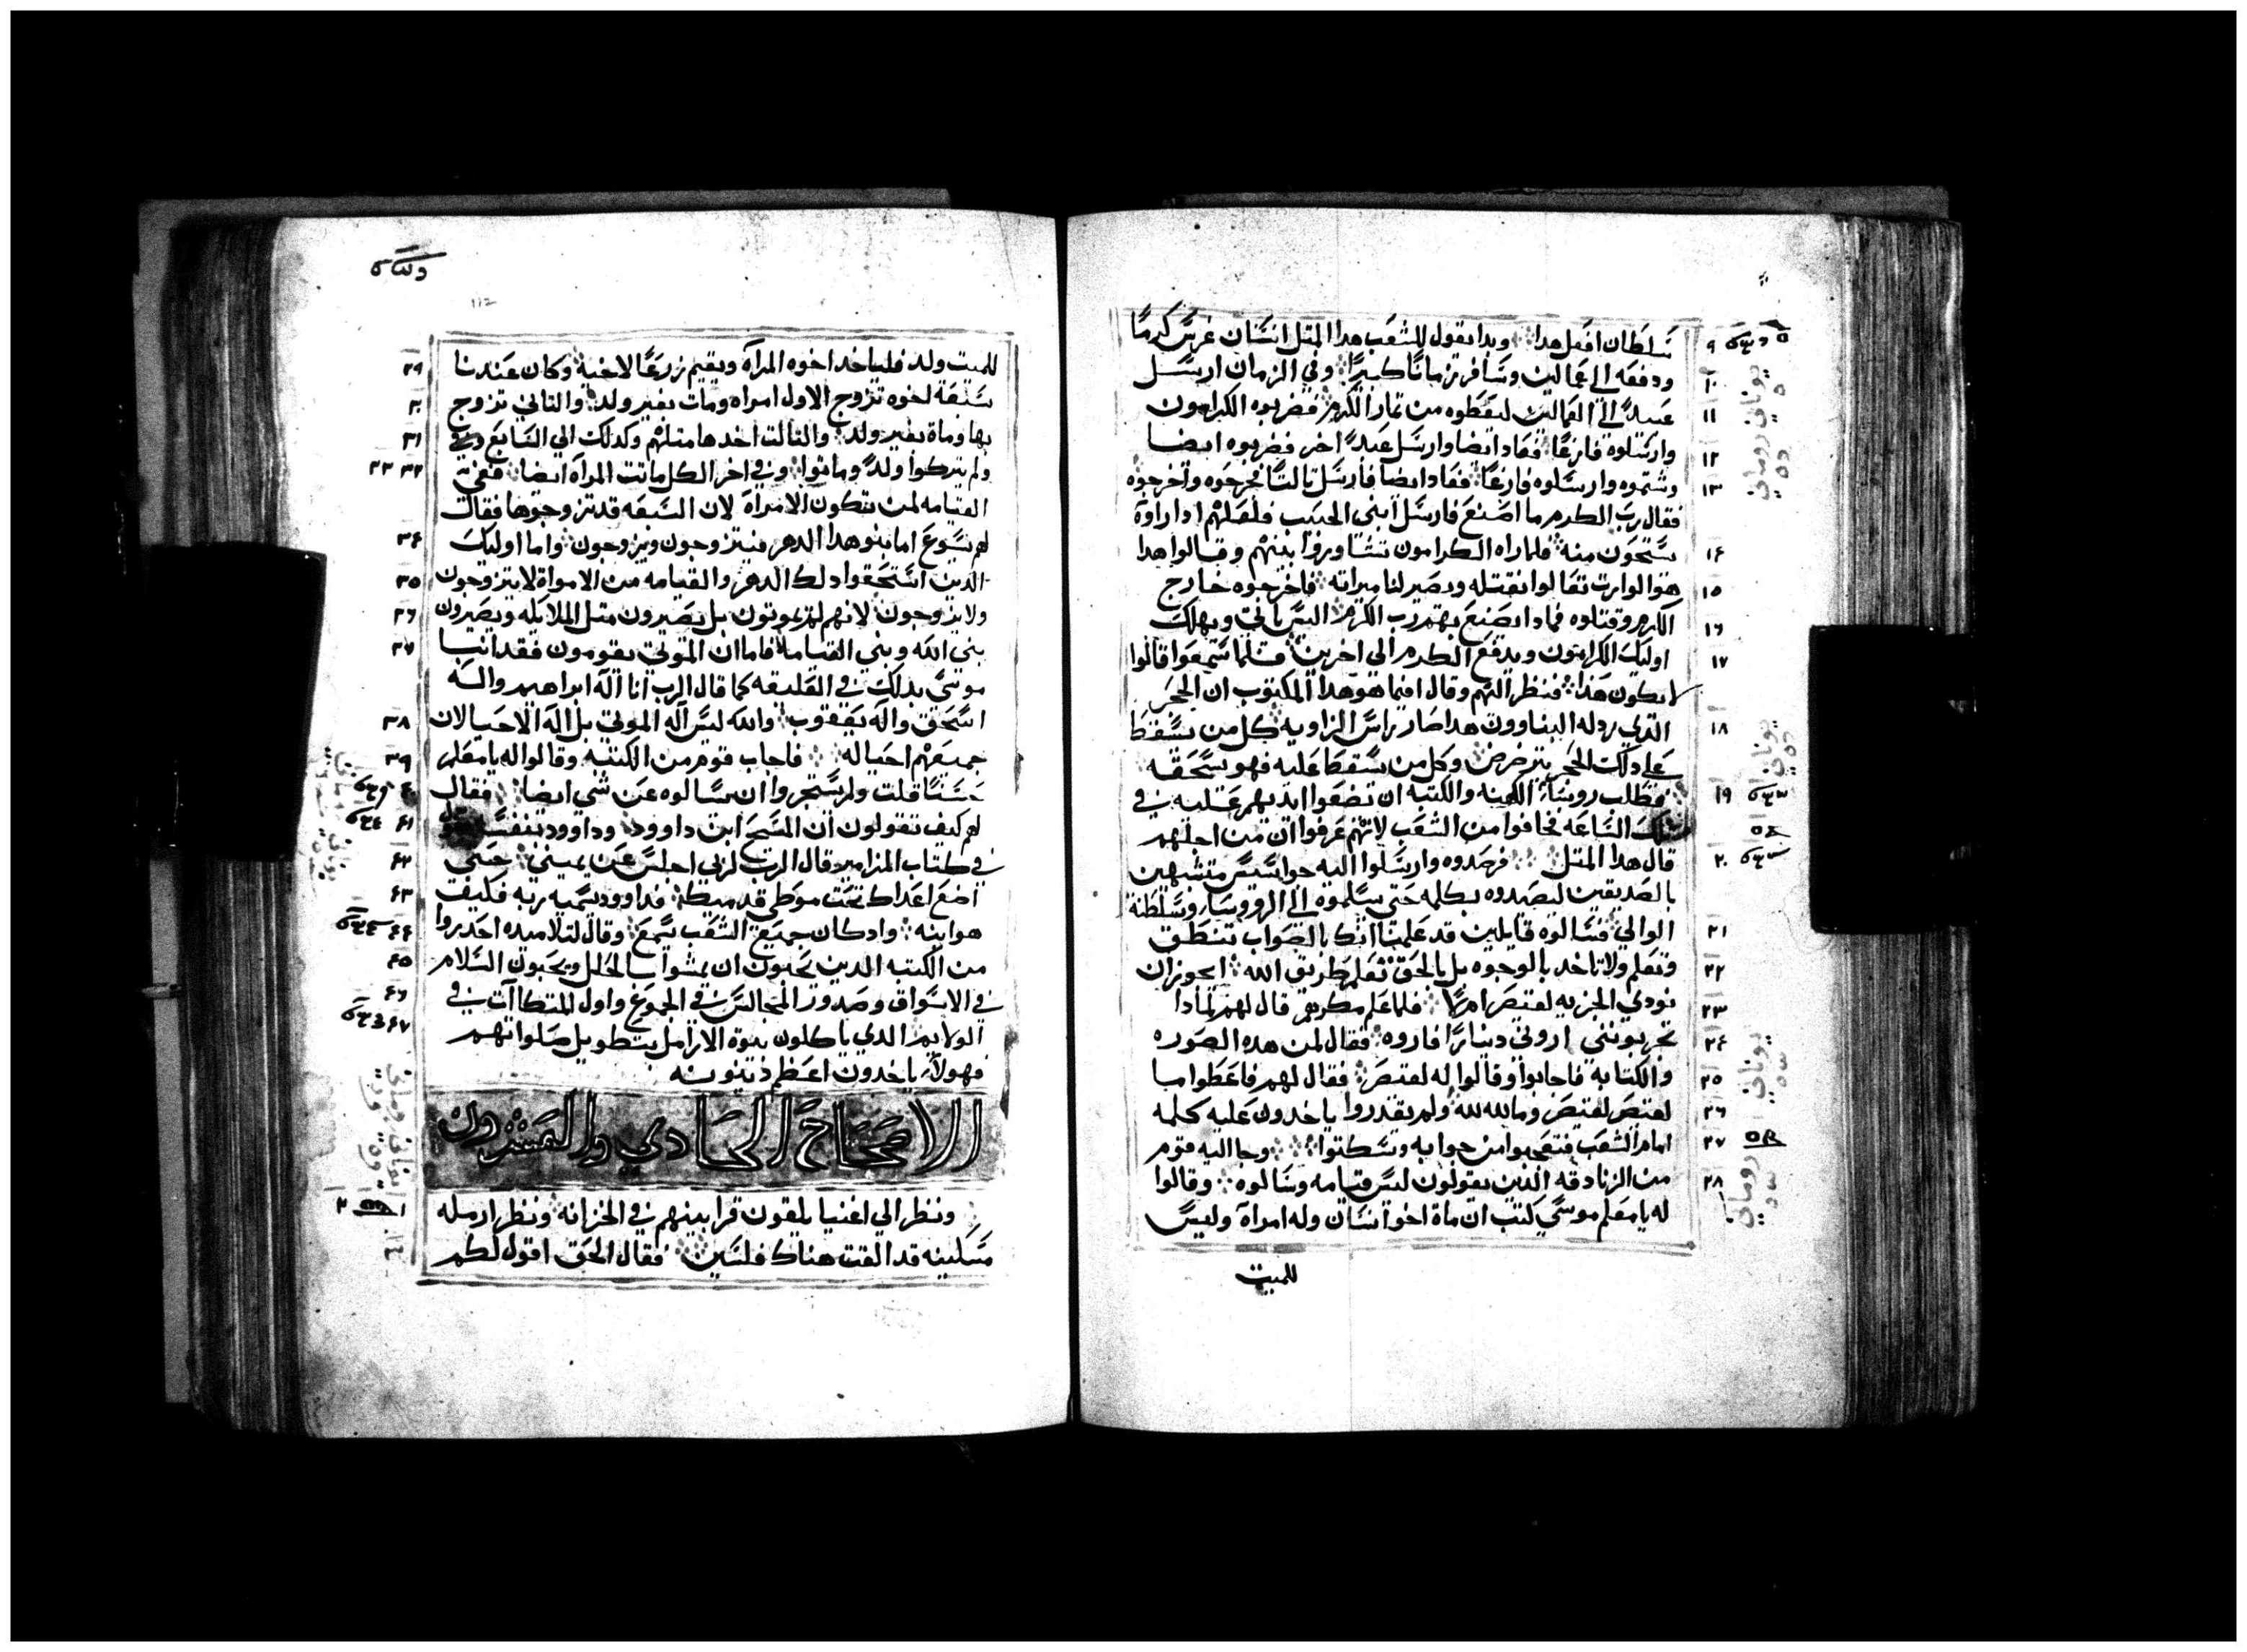 سلطان افعل هدا وبدا يقول للشعب هدا المتل انسان غرس كرمًا
ودفعه الي عمالين وسافر زمانًا كبيرًا وفي الزمان ارسل
عبدًا الي العمالين ليعطوه من تمار الكرم فضربوه الكرامون
وارسلوه فارغًا فعاد ايضا وارسل عبدًا اخر فضربوه ايضا
وشتموه وارسلوه فارغًا فعاد ايضا فارسل تالتًا فجرحوه واخرجوه
فقال رب الكرم ما اصنع فارسل ابني الحبيب فلعلهم ادا راوه
يستحون منه فلما راه الكرامون تشاوروا بينهم وقالوا هدا
هو الوارت تعالوا نقتله ويصير لنا ميراته فاخرجوه خارج
الكرم وقتلوه فمادا يصنع بهم رب الكرم اليس ياتي ويهلك
اوليك الكرامون ويدفع الكرم الي اخرين فلما سمعوا قالوا
لا يكون هدا فنظر اليهم وقال افما هو هدا المكتوب ان الحجر
الدي ردله البناوون هدا صار راس الزاويه كل من يسقط
علي دلك الحجر يترضرض وكل من يسقط عليه فهو يسحقه
فطلب روساء الكهنه والكتبه ان يضعوا ايديهم عليه في
تلك الساعه فخافوا من الشعب لانهم عرفوا ان من اجلهم
قال هدا المتل فرصدوه وارسلوا اليه جواسيس متشبهين
بالصديقين ليصيدوه بكلمه حتي يسلموه الي الروسا وسلطنة
الوالي فسالوه قايلين قد علمنا انك بالصواب تنطق
وتعلم ولا تاخد بالوجوه بل بالحق تعلم طريق الله ايجوز ان
نودي الجزيه لقيصر ام لا فلما علم مكرهم قال لهم لمادا
تجربونني اروني دينارًا فاروه فقال لمن هده الصوره
والكتابه فاجابوا وقالوا له لقيصر فقال لهم فاعطوا ما
لقيصر لقيصر وما لله لله ولم يقدروا ياخدون عليه كلمه
امام الشعب فتعجبوا من جوابه وسكتوا وجا اليه قوم
من الزنادقه الدين يقولون ليس قيامه وسالوه وقالوا
له يا معلم موسي كتب ان ماة اخو انسان وله امراة وليس
للميت
للميت ولد فلياخد اخوه المراة ويقيم زرعًا لاخيه وكان عندنا
سبعة اخوه تزوج الاول امراه ومات بغير ولد والتاني تزوج
بها وماة بغير ولد والتالت اخدها متلهم وكدلك الي السابع
ولم يتركوا ولدًا وماتوا وفي اخر الكل ماتت المراه ايضا ففي
القيامه لمن تكون الامراة لان السبعه قد تزوجوها فقال
لهم يسوع اما بنو هدا الدهر فيتزوجون ويزوجون واما اوليك
الدين استحقوا دلك الدهر والقيامه من الامواة لا يتزوجون
ولا يزوجون لانهم لم يموتون بل يصيرون متل الملايكه ويصيرون
بني الله وبني القيامه فاما ان الموتي يقومون فقد انبا
موسي بدلك في العليقه كما قال الرب انا اله ابراهيم واله
اسحق واله يعقوب والله ليس اله الموتي بل اله الاحيا لان
جميعهم احيا له فاجاب قوم من الكتبه وقالوا له يا معلم
حسنًا قلت ولم يستجروا ان يسالوه عن شي ايضا فقال
لهم كيف تقولون ان المسيح ابن داوود وداوود بنفسه يقول
في كتاب المزامير قال الرب لربي اجلس عن يميني حتي
اضع اعداك تحت موطي قدميك فداوود يسميه ربه فكيف
هو ابنه واد كان جميع الشعب يسمع وقال لتلاميده احدروا
من الكتبه الدين يحبون ان يمشوا بالحلل ويحبون السلام
في الاسواق وصدور المجالس في الجموع واول المتكاآت في
الولايم الدي ياكلون بيوة الارامل بتطويل صلواتهم
فهولاء ياخدون اعظم دينونه
الاصحاح الحادي والعشرون
ونظر الي اغنيا يلقون قرابينهم في الخزانه ونظر ارمله
مسكينه قد القت هناك فلسين فقال الحق اقول لكم